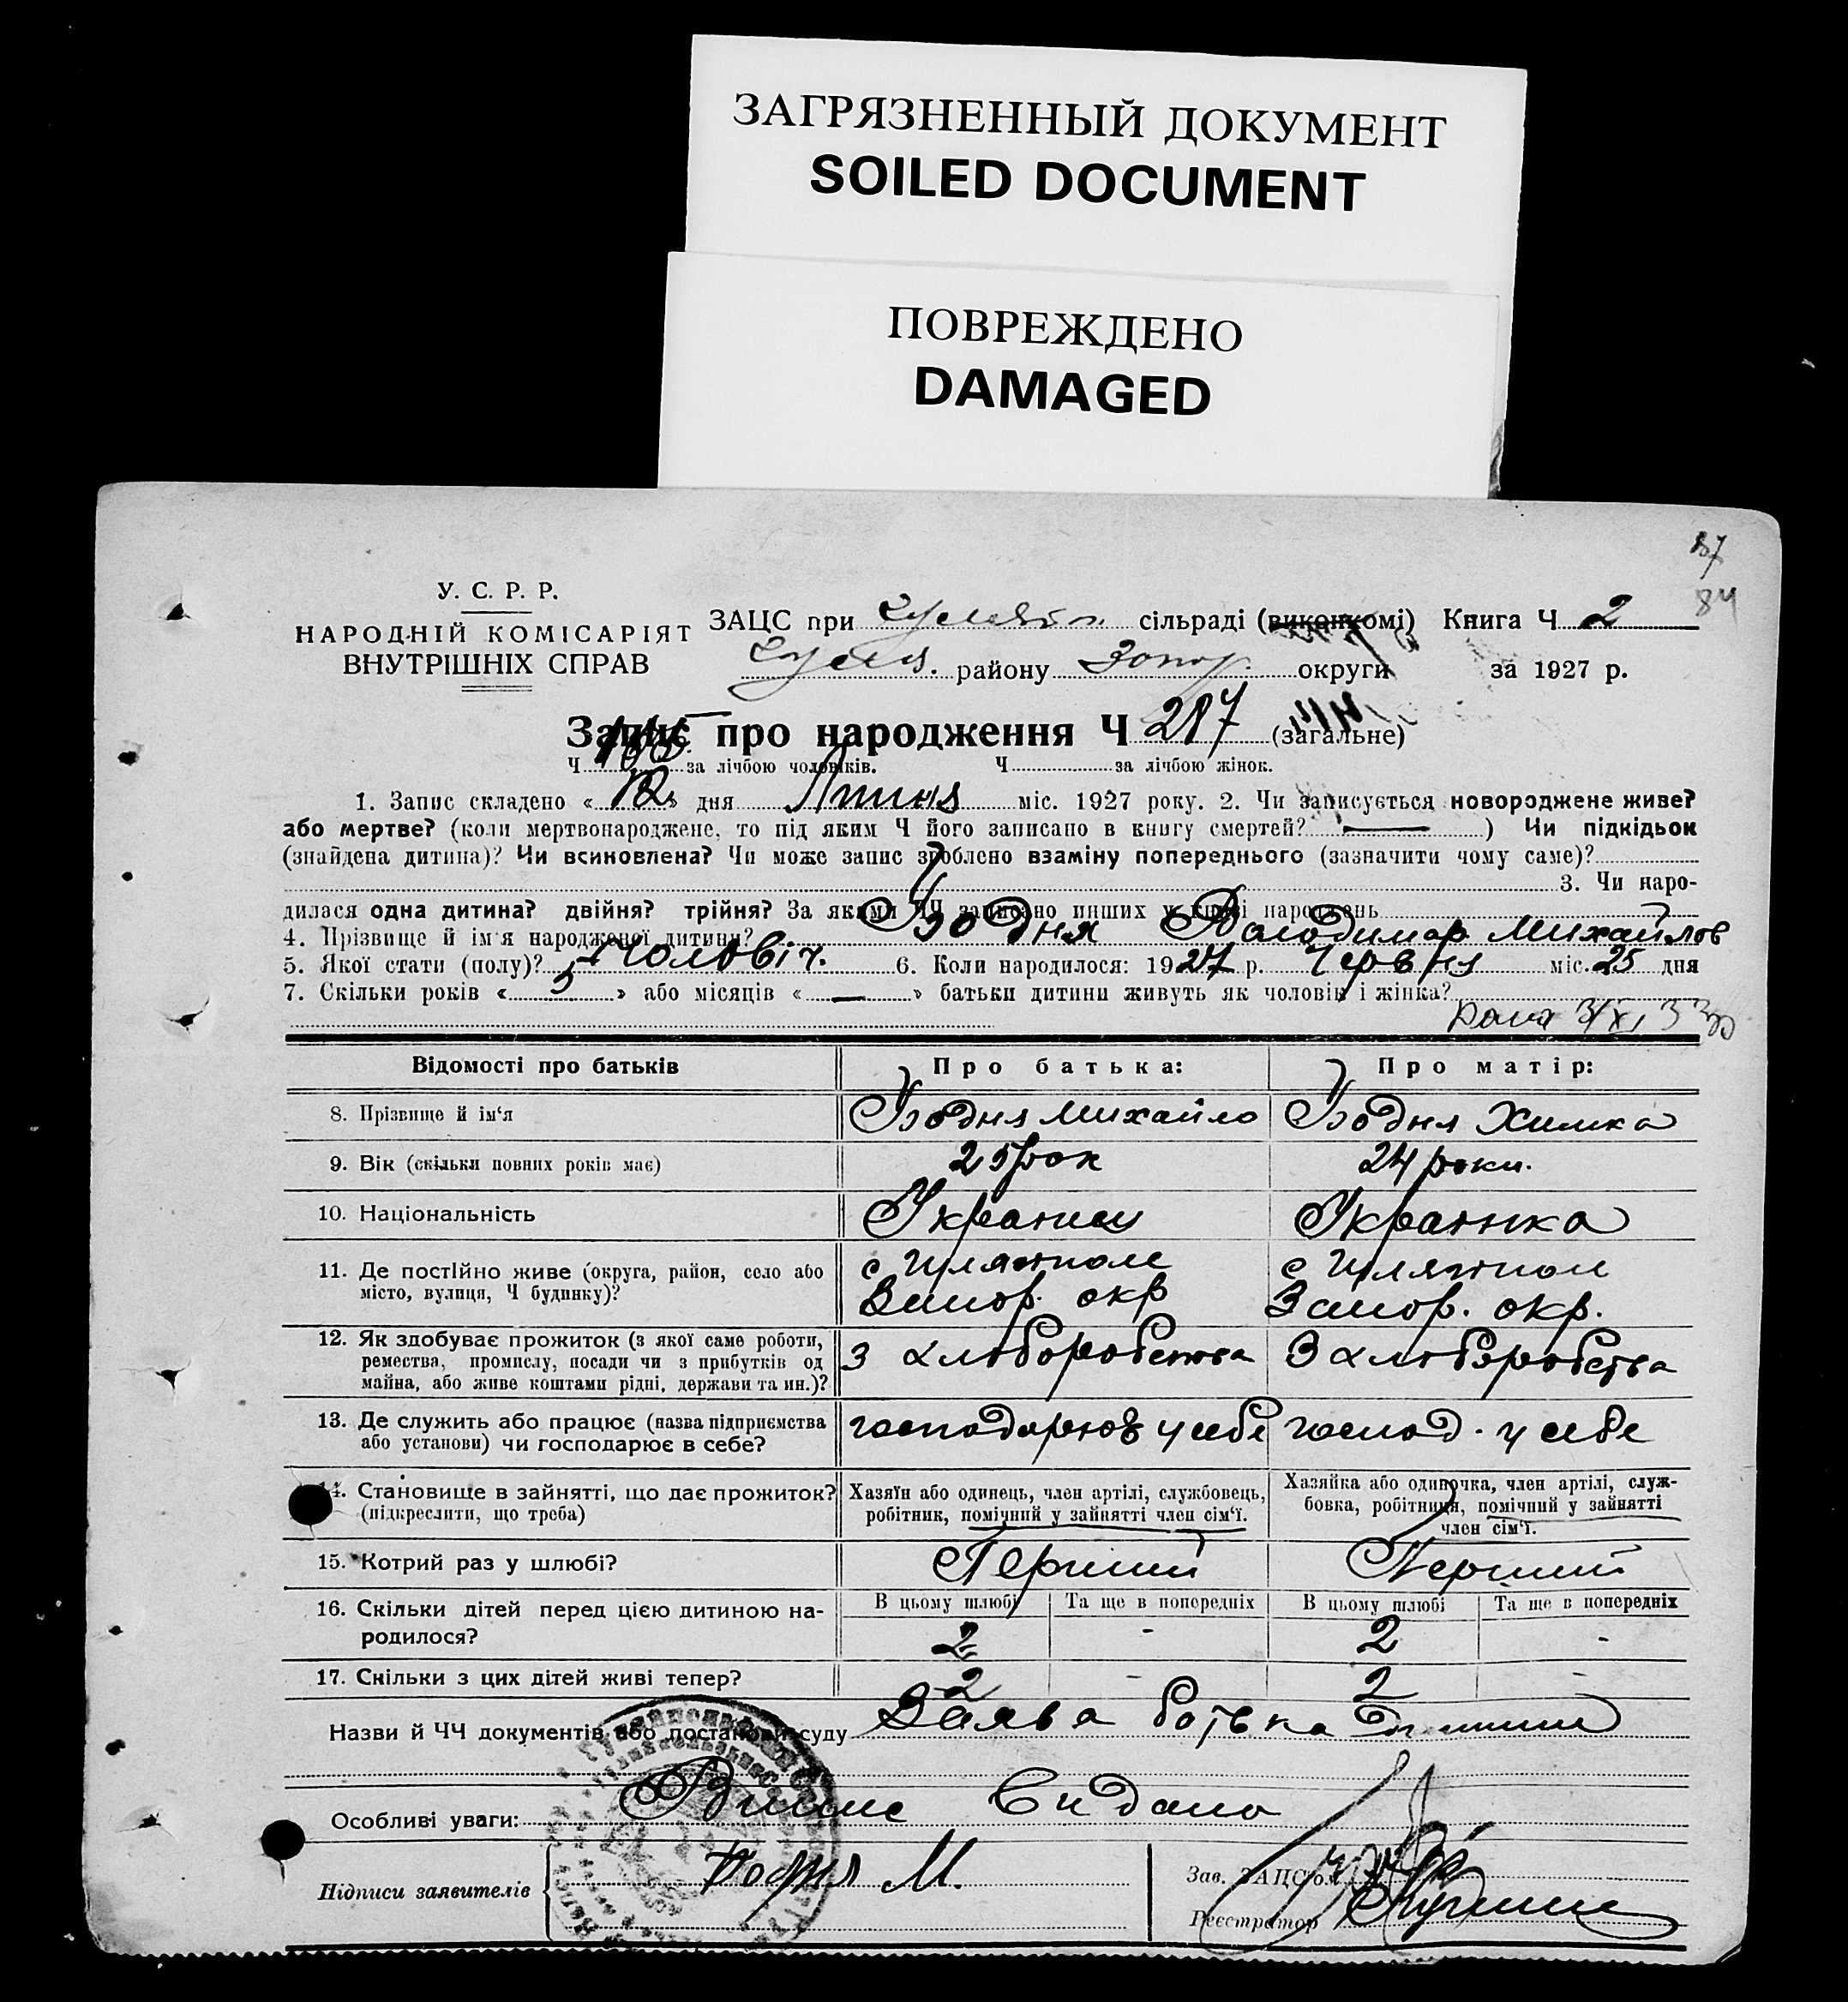 ЗАГРЯЗНЕННЫЙ ДОКУМЕНТ
SOILED DOCUMENT
ПОВРЕЖДЕНО
DAMAGED
87
84
У. С. Р. Р.
НАРОДНІЙ КОМІСАРІЯТ
ВНУТРІШНІХ СПРАВ
ЗАЦС при сільраді (виконкомі) Книга Ч 2
району Запор. округи за 1927 р.
Запис про народження Ч 287 (загальне)
Ч за лічбою чоловіків. Ч за лічбою жінок.
1. Запис складено « 12 » дня Липня міс. 1927 року. 2. Чи записується новороджене живе?
або мертве? (коли мертвонароджене, то під яким Ч його записано в книгу смертей? — ) Чи підкідьок
(знайдена дитина)? Чи всиновлена? Чи може запис зроблено взаміну попереднього (зазначити чому саме)?
3. Чи наро-
дилася одна дитина? двійня? трійня? За якими ЧЧ записано инших у книзі народжень
4. Прізвище й ім'я народженої дитини? Володимир Михайлов
5. Якої стати (полу)? Чоловіч. 6. Коли народилося: 1927 р. Червня міс. 25 дня
7. Скільки років « 5 » або місяців « — » батьки дитини живуть як чоловік і жінка?
Відомості про батьків Про батька: Про матір:
8. Прізвище й ім'я Михайло Химка
9. Вік (скільки повних років має) 25 рок 24 роки.
10. Національність Украинец Украинка
11. Де постійно живе (округа, район, село або місто, вулиця, Ч будинку)? с Гуляйполе Запор. окр с Гуляйполе Запор. окр.
12. Як здобуває прожиток (з якої саме роботи, ремества, промислу, посади чи з прибутків од майна, або живе коштами рідні, держави та ин.)? З хліборобства З хліборобства
13. Де служить або працює (назва підприємства або установи) чи господарює в себе? господарює у себе господ. у себе
14. Становище в зайнятті, що дає прожиток? (підкреслити, що треба) Хазяїн або одинець, член артілі, службовець, робітник, помічний у зайнятті член сім'ї. Хазяйка або одиночка, член артілі, служ-бовка, робітниця, помічний у зайнятті член сім'ї.
15. Котрий раз у шлюбі? Перший Перший
16. Скільки дітей перед цією дитиною на-родилося? В цьому шлюбі Та ще в попередніх В цьому шлюбі Та ще в попередніх
2 - 2 -
17. Скільки з цих дітей живі тепер? 2 - 2 -
Назви й ЧЧ документів або постанови суду Заява батька
Особливі уваги: Видано
Підписи заявителів М.
Зав. ЗАЦС'ом
Реєстратор